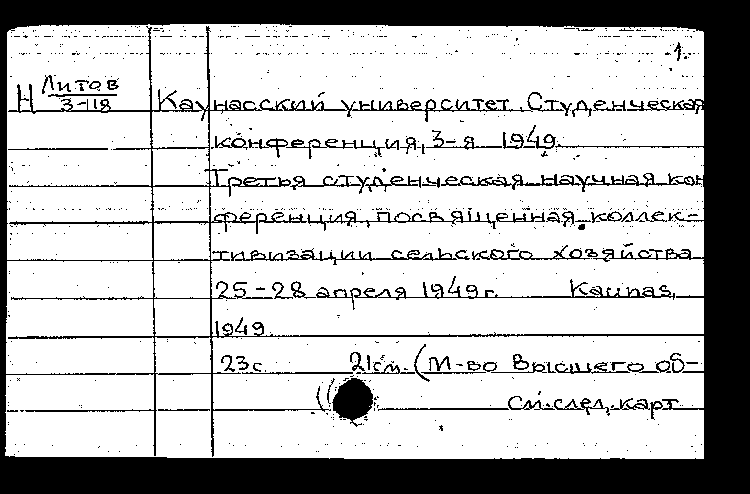 1.
Н Литов
3-118
Каунасский университет. Студенческая
конференция, 3-я 1949.
Третья студенческая научная кон
ференция, посвященная коллек-
тивизации сельского хозяйства
25-28 апреля 1949 г. Kaunas,
1949.
23 с. 21 см. (М-во Высшего об-
См. след. карт